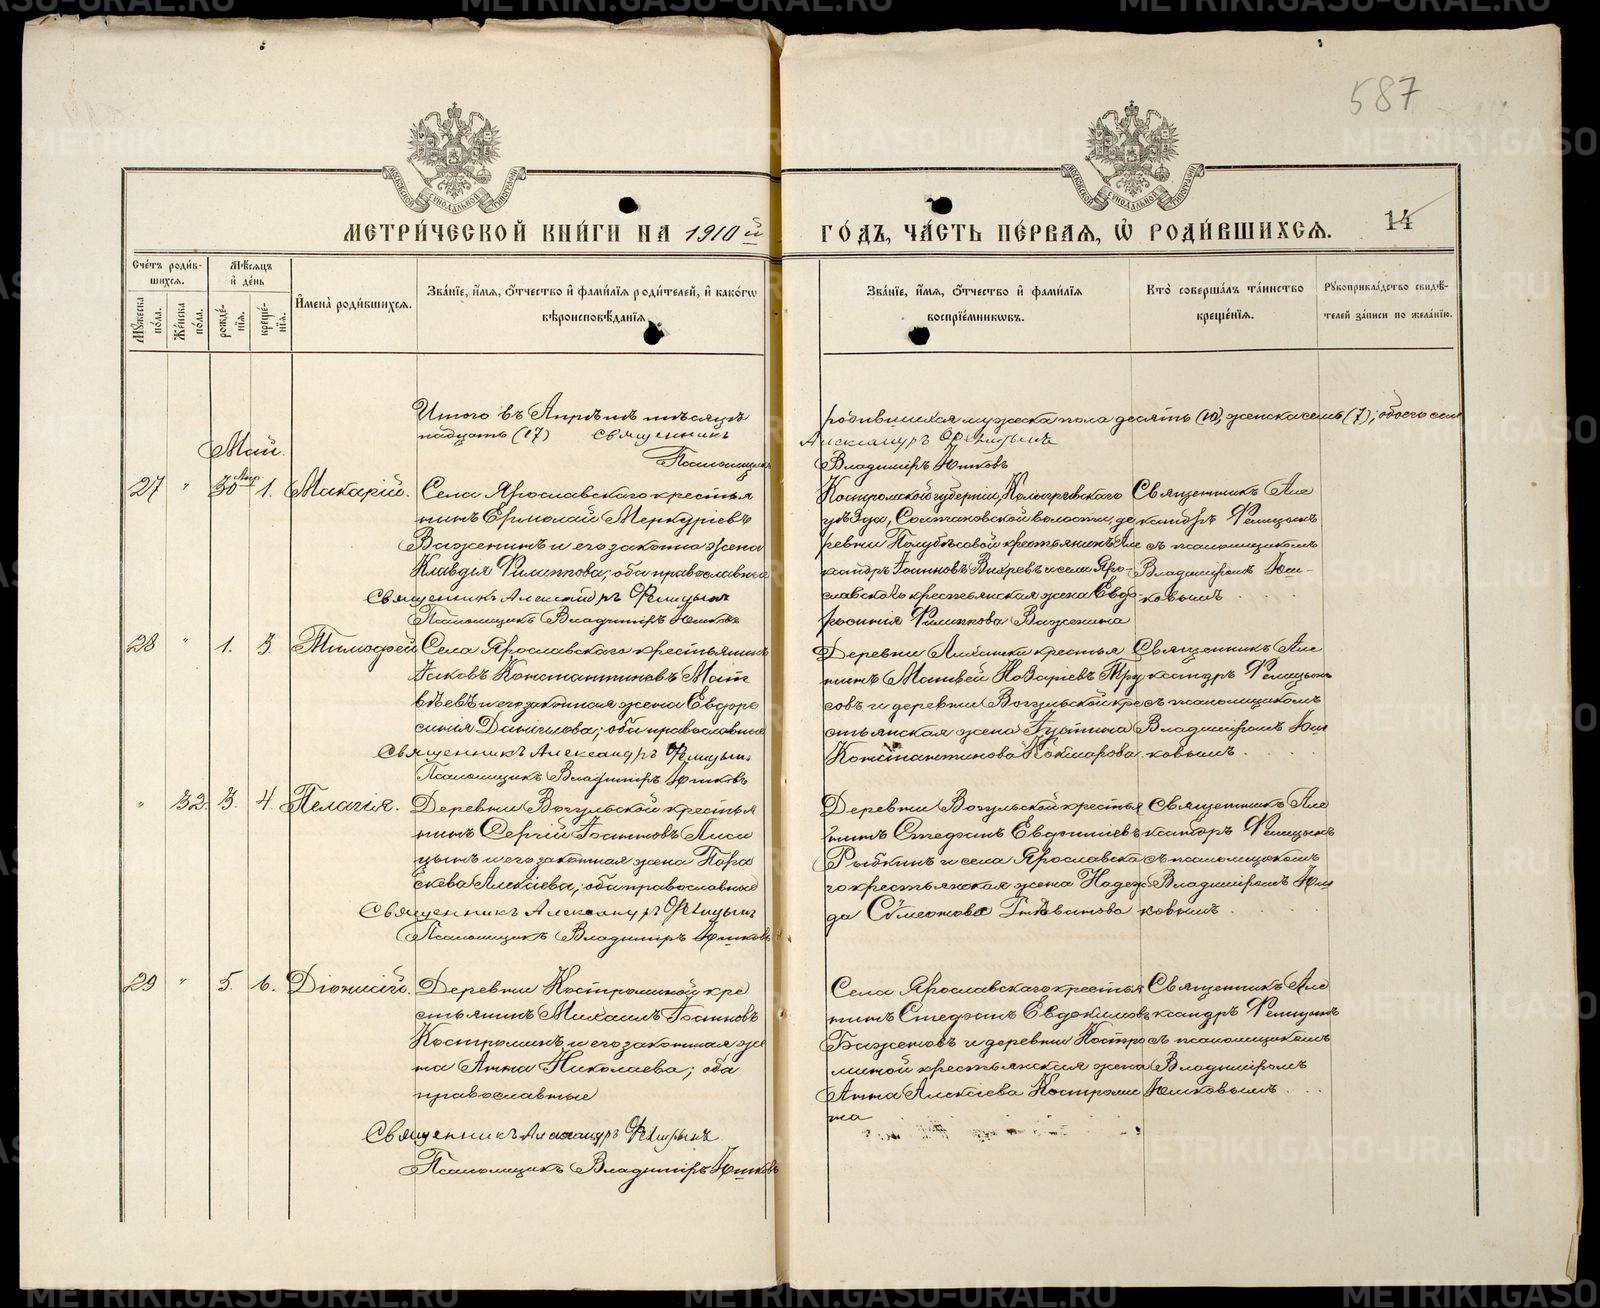 587
МЕТРИ́ЧЕСКОЙ КНИ́ГИ НА 1910й
ГО́ДЪ, ЧА́СТЬ ПЕ́РВАЯ, Ѡ҆ РОДИ́ВШИХСѦ.
14
Сче́тъ роди́вшихсѧ.
Мꙋ́жеска по́ла.
Же́нска по́ла.
Мѣ́сѧцъ и҆ де́нь
рожде́нїѧ.
креще́нїѧ.
И҆мена̀ роди́вшихсѧ.
Зва́нїе, и҆́мѧ, ѻ҆́тчество и҆ фами́лїѧ роди́телей, и҆ како́гѡ
вѣроисповѣ́данїѧ.
Зва́нїе, и҆́мѧ, ѻ҆́тчество и҆ фами́лїѧ
воспрїе́мникѡвъ.
Кто̀ соверша́лъ та́инство
креще́нїѧ.
Рꙋкоприкла́дство свидѣ́-
телей за́писи по жела́нїю.
Итого въ Апрѣлѣ мѣсяцѣ
родившихся мужеска пола десять (10), женска семь (7), обоего сем
надцать (17) Священникъ
Александръ Фелицынъ
Псаломщикъ
Владиміръ Юшковъ
Май.
27 " 30 Апр. 1. Макарій.
Села Ярославскаго крестья
нинъ Ермолай Меркуріевъ
Важенинъ и его законна жена
Клавдія Филиппова; оба православные
Священникъ Александръ Фелицынъ
Псаломщикъ Владиміръ Юшковъ
Костромской губерніи, Кологривскаго
уѣзда, Солтановской волости, де
ревни кресть­янинъ Але
ксандръ Іоанновъ Вихревъ и села Яро-
славскаго крестьянская жена Евф
росинія Филиппова Важенина
Священникъ Але
ксандръ Фелицынъ
съ псаломщикомъ
Владиміромъ Юш-
ковымъ
28 " 1. 3. Тимофей
Села Ярославскаго крестьянинъ
Іаковъ Константиновъ Мат
вѣевъ и его законная жена Евфро
синія Даніилова; оба православные
Священникъ Александръ Фелицынъ
Псаломщикъ Владиміръ Юшковъ
Деревни крестья
нинъ Матвей Назаріевъ Тру
совъ и деревни Вогульской кре
стьянская жена Іустина
Константинова Кокшарова
Священникъ Але
ксандръ Фелицынъ
съ псаломщикомъ
Владиміромъ Юш
ковымъ.
" 32. 3. 4. Пелагія.
Деревни Вогульской крестья
нинъ Сергій Іоанновъ Лиси
цынъ и его законная жена Пара
скева Алексіева; оба православные
Священникъ Александръ Фелицынъ
Псаломщикъ Владиміръ Юшковъ
Деревни Вогульской крестья
нинъ Стефанъ Евфиміевъ
Рыбкинъ и села Ярославска
го крестьянская жена Надеж
да Сѵмеонова Гнѣватова
Священникъ Але
ксандръ Фелицынъ
съ псаломщикомъ
Владиміромъ Юш
ковымъ
29 " 5. 6. Діонисій.
Деревни Костроминой кре
стьянинъ Михаилъ Іоанновъ
Костроминъ и его законная же
на Анна Николаева; оба
православные
Священникъ Александръ Фелицынъ
Псаломщикъ Владиміръ Юшковъ
Села Ярославскаго крестья
нинъ Стефанъ Евдокимовъ
Баженовъ и деревни Костро
миной крестьянская жена
Анна Алексіева Костроми
на
Священникъ Але
ксандръ Фелицынъ
съ псаломщикомъ
Владиміромъ
Юшковымъ
METRIKI.GASO-URAL.RU